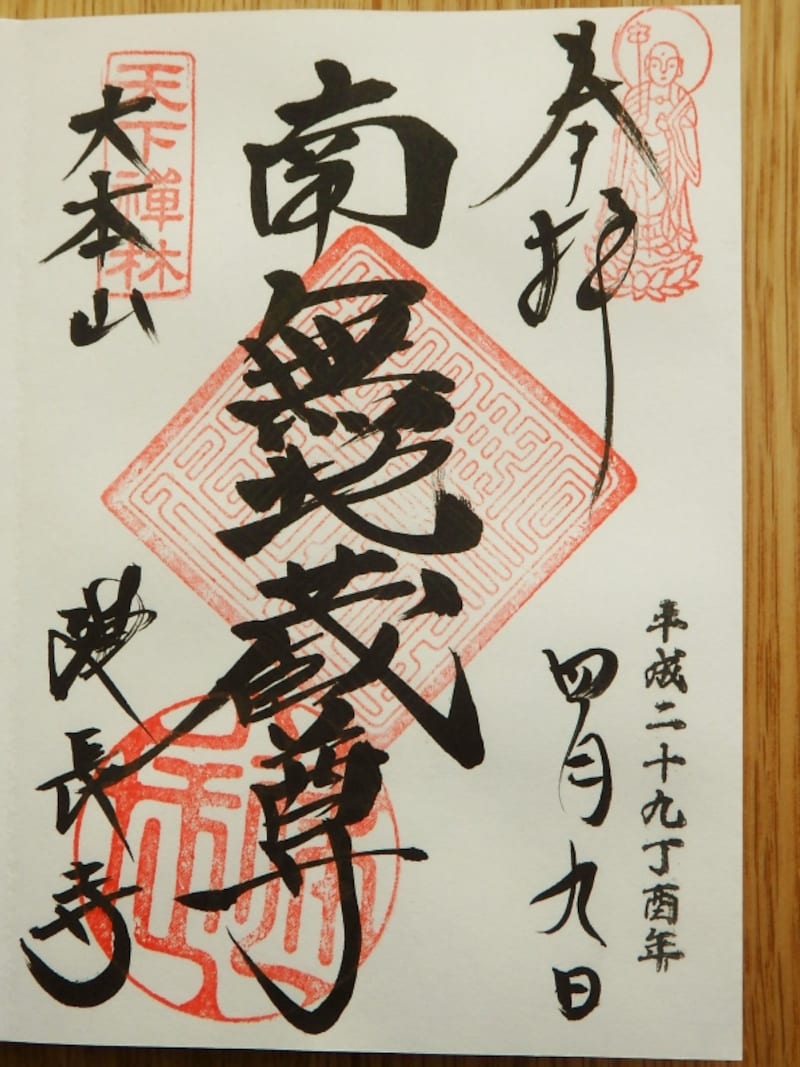 奉拝
平成二十九丁酉年
四月九日
南無地蔵尊
天下禅林
大本山
建長寺